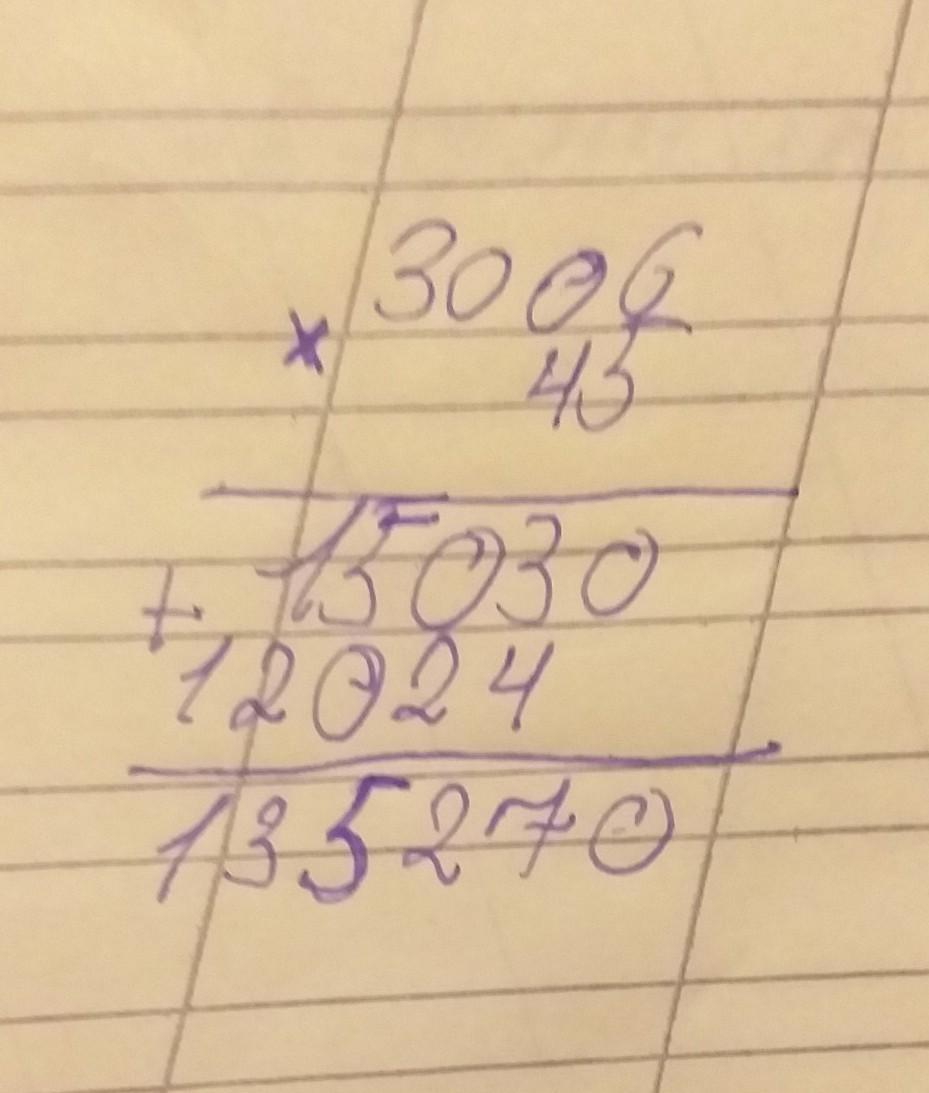 3006
×
45
15030
+
12024
135270